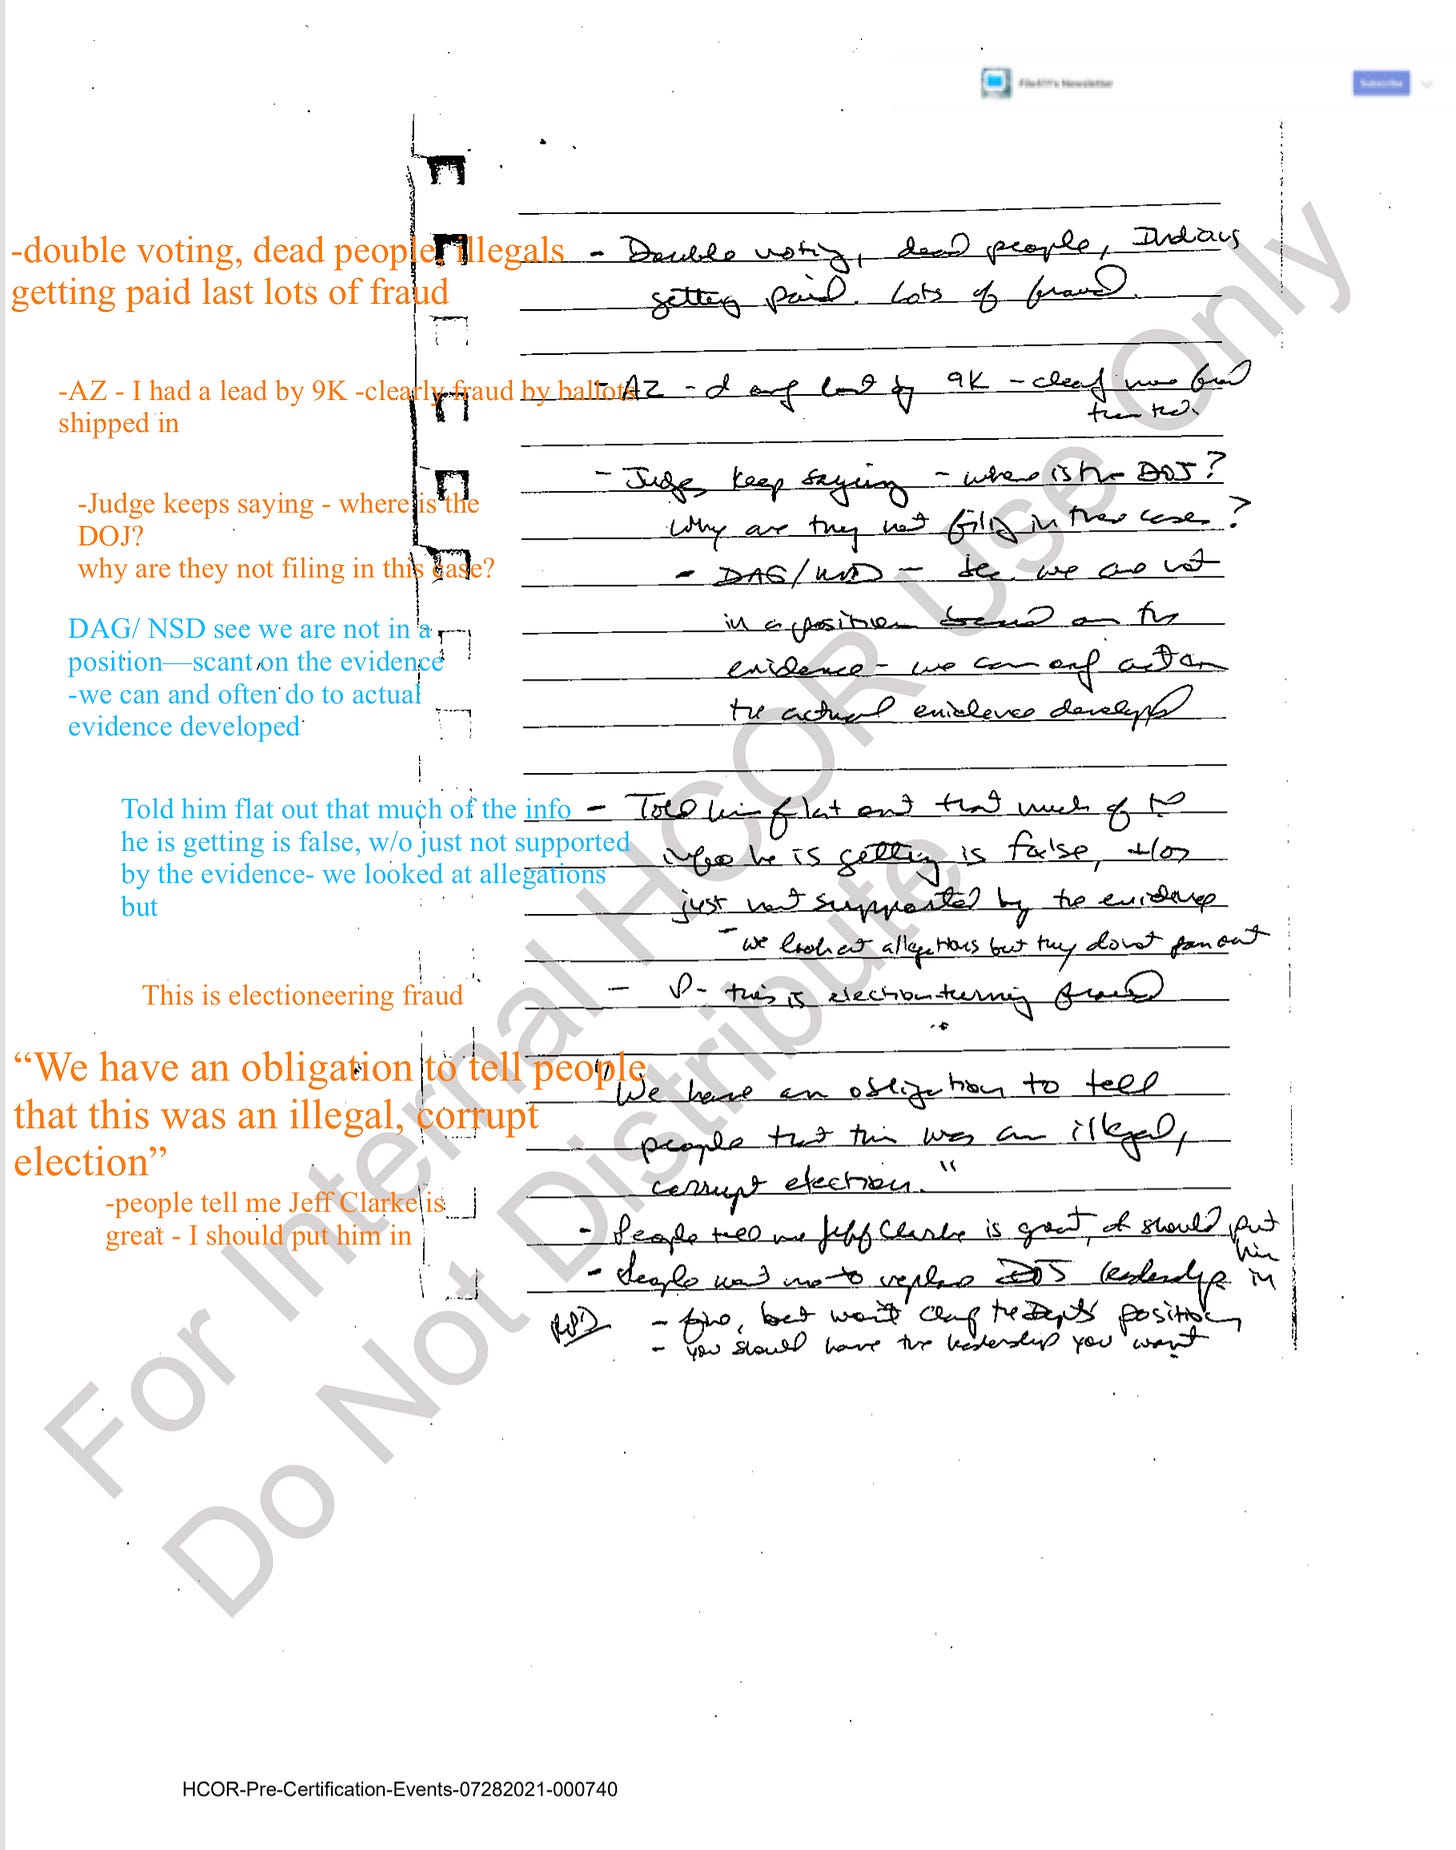 File411's Newsletter
Subscribe
-double voting, dead people, illegals
getting paid last lots of fraud
- Double voting, dead people, Indians
getting paid. Lots of fraud.
-AZ - I had a lead by 9K -clearly fraud by ballots
shipped in
- AZ - only lost by 9K - clearly
-Judge keeps saying - where is the
DOJ?
why are they not filing in this case?
- Judges keep saying - where is the DOJ?
Why are they not filing in these cases?
DAG/ NSD see we are not in a
position—scant on the evidence
-we can and often do to actual
evidence developed
- DAG/ - we are not
in a position based on the
evidence - we can only act on
the actual evidence developed
Told him flat out that much of the info
he is getting is false, w/o just not supported
by the evidence- we looked at allegations
but
- Told him flat out that much of the
info he is getting is false, +/or
just not supported by the evidence
- we look at allegations but they don't pan out
This is electioneering fraud
- P - this is election turning fraud
“We have an obligation to tell people
that this was an illegal, corrupt
election”
"We have an obligation to tell
people that this was an illegal,
corrupt election."
-people tell me Jeff Clarke is
great - I should put him in
- People tell me Jeff Clarke is great, I should put
him
- People want me to replace DOJ leadership in
- fine, but won't change the Dept's position
- you should have the leadership you want
For Internal HCOR Use Only
Do Not Distribute
HCOR-Pre-Certification-Events-07282021-000740